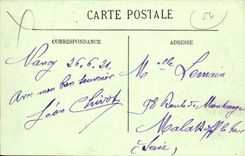 54
CARTE POSTALE
CORRESPONDANCE
ADRESSE
Nancy 26.6.21
Avec mon bon souvenir
Léon
Melle Lemain
98 Route de Montrouge
Malakoff
Seine